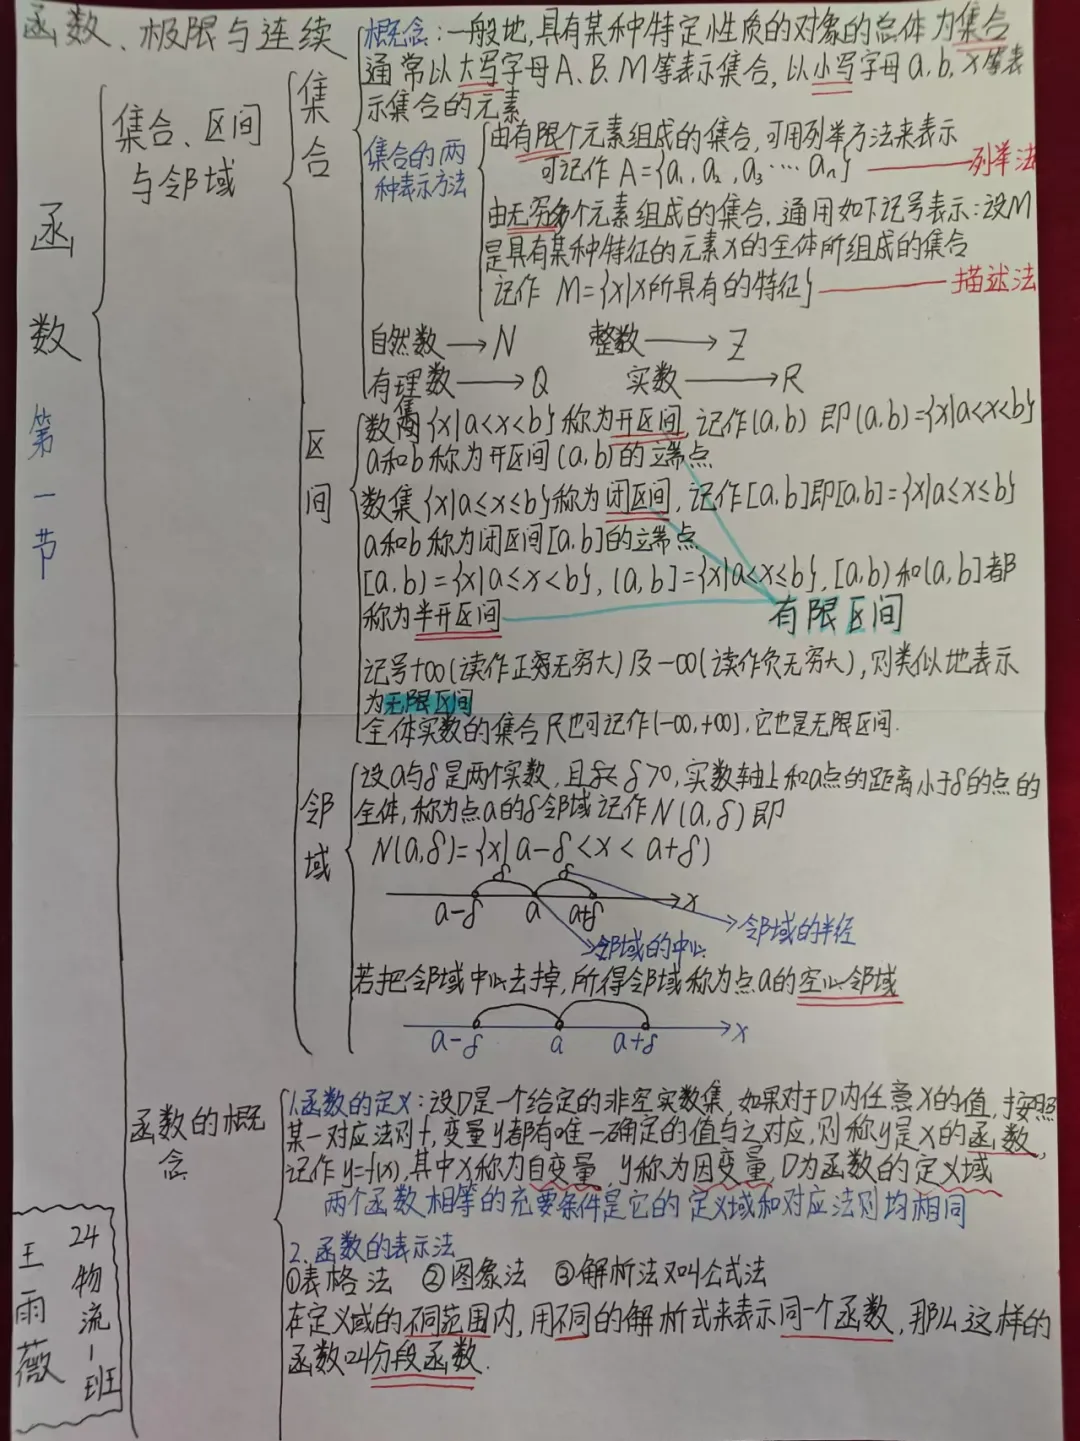 函数、极限与连续
函数
第一节
集合、区间
与邻域
集合
概念：一般地，具有某种特定性质的对象的总体为集合
通常以大写字母A、B、M等表示集合，以小写字母a、b、x等表
示集合的元素
集合的两
种表示方法
由有限个元素组成的集合，可用列举方法来表示
可记作 A={a₁, a₂, a₃ ···· aₙ} 列举法
由无穷多个元素组成的集合，通用如下记号表示：设M
是具有某种特征的元素x的全体所组成的集合
记作 M={x|x所具有的特征} 描述法
自然数→N 整数→Z
有理数→Q 实数→R
区间
数集{x|a<x<b}称为开区间，记作(a,b) 即(a,b)={x|a<x<b}
a和b称为开区间(a,b)的端点
数集{x|a≤x≤b}称为闭区间，记作[a,b]即[a,b]={x|a≤x≤b}
a和b称为闭区间[a,b]的端点
[a,b)={x|a≤x<b}, (a,b]={x|a<x≤b}, [a,b)和(a,b]都
称为半开区间 有限区间
记号+∞(读作正无穷大)及-∞(读作负无穷大)，则类似地表示
为无限区间
全体实数的集合R也可记作(-∞,+∞)，它也是无限区间.
邻域
设a与δ是两个实数，且δ>0，实数轴上和a点的距离小于δ的点的
全体，称为点a的δ邻域 记作N(a,δ)即
N(a,δ)={x|a-δ<x<a+δ)
δ δ
a-δ a a+δ x
邻域的半径
邻域的中心
若把邻域中心去掉，所得邻域称为点a的空心邻域
a-δ a a+δ x
函数的概
念
1.函数的定义：设D是一个给定的非空实数集，如果对于D内任意x的值，按照
某一对应法则f，变量y都有唯一确定的值与之对应，则称y是x的函数，
记作y=f(x)，其中x称为自变量，y称为因变量，D为函数的定义域
两个函数相等的充要条件是它的定义域和对应法则均相同
2.函数的表示法
①表格法 ②图象法 ③解析法又叫公式法
在定义域的不同范围内，用不同的解析式来表示同一个函数，那么这样的
函数叫分段函数.
24物流1班
王雨薇